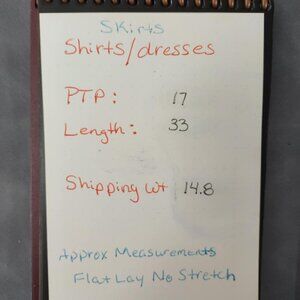 Skirts
Shirts/dresses
PTP: 17
Length: 33
Shipping wt 14.8
Approx Measurements
Flat Lay No Stretch